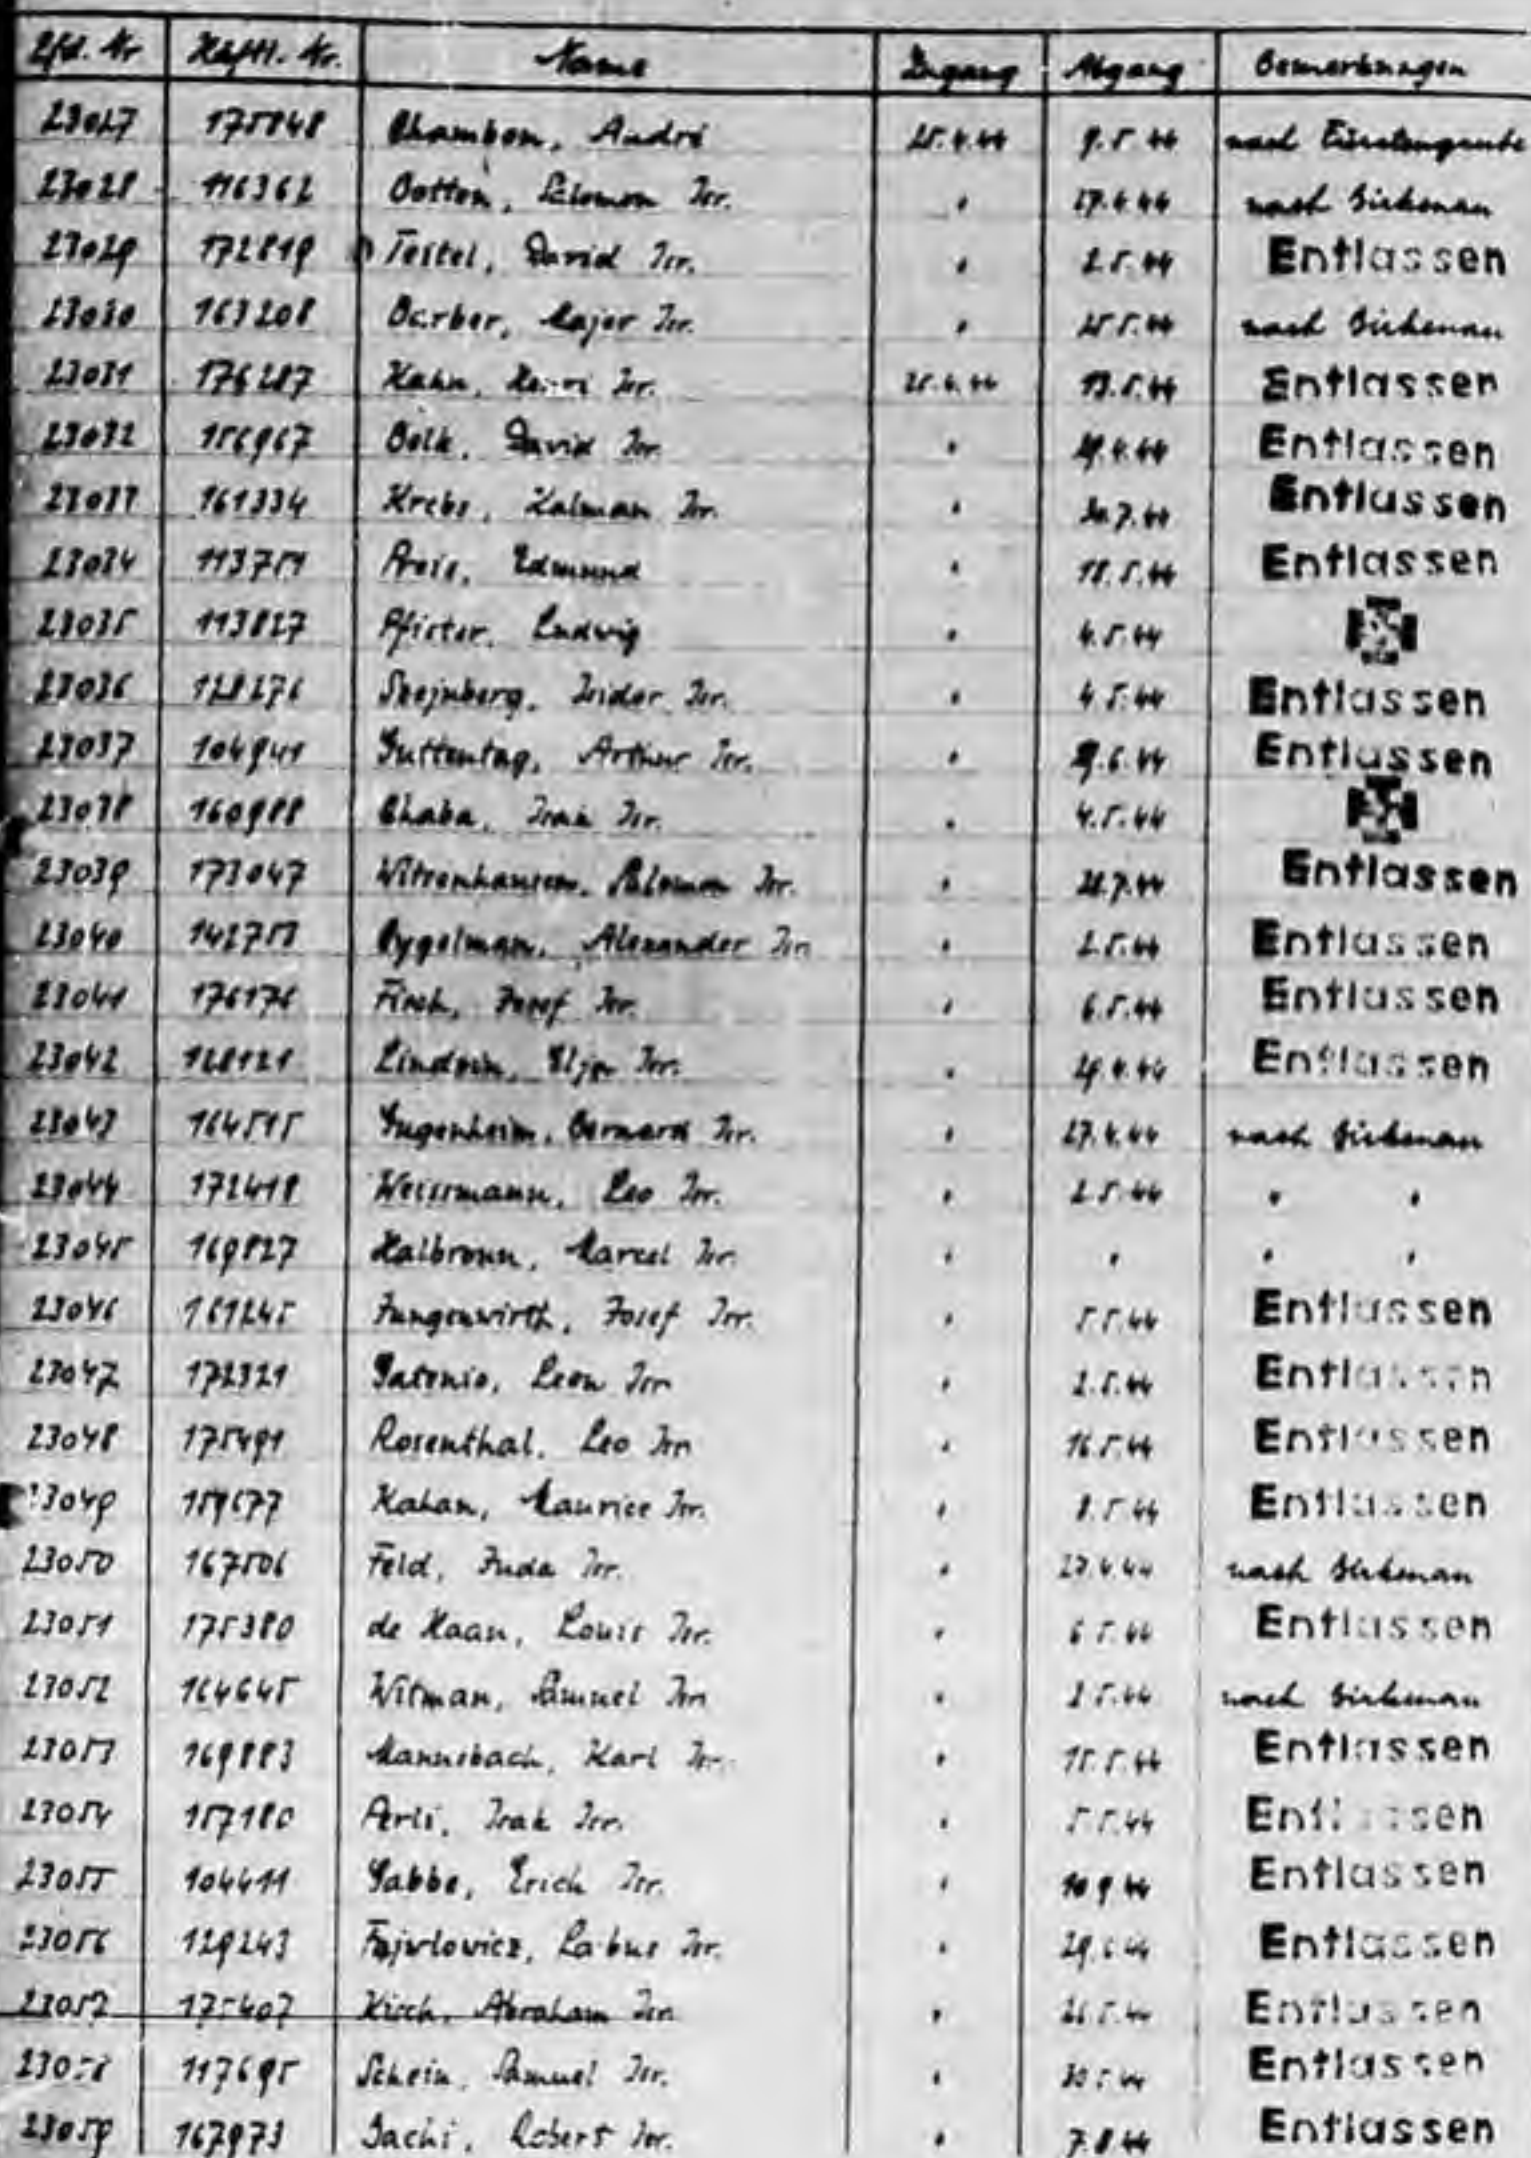 Lfd. Nr Häftl. Nr. Name Zugang Abgang Bemerkungen
23027 175848 Chambon, André 25.4.44 9.5.44 nach Fürstengrube
23028 116362 Botton, Salomon Isr. " 27.4.44 nach Birkenau
23029 172819 Teitel, David Isr. " 2.5.44 Entlassen
23030 163208 Berber, Majer Isr. " 25.5.44 nach Birkenau
23031 176287 Kahn, Henri Isr. 25.4.44 13.5.44 Entlassen
23032 156967 Bolk, David Isr. " 29.4.44 Entlassen
23033 161334 Krebs, Kalman Isr. " 20.7.44 Entlassen
23034 113751 Preis, Edmund " 18.5.44 Entlassen
23035 113827 Pfister, Ludwig " 4.5.44
23036 128276 Szejnberg, Isidor Isr. " 4.5.44 Entlassen
23037 104941 Guttentag, Arthur Isr. " 29.6.44 Entlassen
23038 160988 Chaba, Izak Isr. " 4.5.44
23039 173047 Witzenhausen, Salomon Isr. " 28.7.44 Entlassen
23040 142753 Cygelman, Alexander Isr. " 2.5.44 Entlassen
23041 176176 Josef Isr. " 6.5.44 Entlassen
23042 128121 Isr. " 29.4.44 Entlassen
23043 164515 Gugenheim, Bernard Isr. " 27.4.44 nach Birkenau
23044 172418 Weissmann, Leo Isr. " 2.5.44 " "
23045 169827 Halbronn, Marcel Isr. " " " "
23046 161245 Jungenwirth, Josef Isr. " 5.5.44 Entlassen
23047 172321 Gatenio, Leon Isr. " 2.5.44 Entlassen
23048 175491 Rosenthal, Leo Isr. " 16.5.44 Entlassen
23049 159677 Kahan, Maurice Isr. " 8.5.44 Entlassen
23050 167506 Feld, Juda Isr. " 27.4.44 nach Birkenau
23051 175380 de Haan, Louis Isr. " 6.5.44 Entlassen
23052 164645 Witman, Samuel Isr. " 2.5.44 nach Birkenau
23053 169883 Mannsbach, Karl Isr. " 15.5.44 Entlassen
23054 157180 Perli, Izak Isr. " 5.5.44 Entlassen
23055 104411 Gabbe, Erich Isr. " 10.9.44 Entlassen
23056 129243 Fajwlowicz, Labus Isr. " 29.6.44 Entlassen
23057 175407 Kisch, Abraham Isr. " 26.5.44 Entlassen
23058 117695 Schein, Samuel Isr. " 30.5.44 Entlassen
23059 167973 Sachi, Robert Isr. " 7.8.44 Entlassen